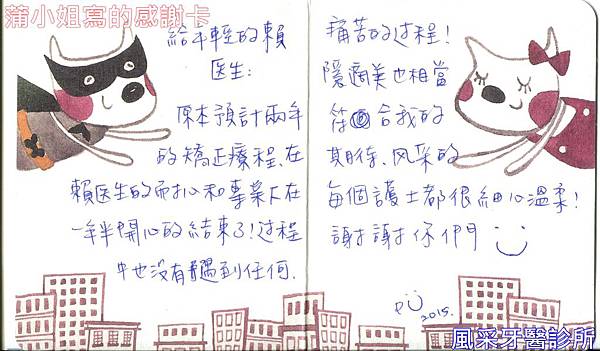 蒲小姐寫的感謝卡
給年輕的賴
医生:
原本預計兩年
的矯正療程、在
賴医生的耐心和專業下在
一年半開心的結束了!过程
中也沒有遇到任何.
痛苦的过程!
隱適美也相當
符合我的
期待、风采的
每個護士都很細心溫柔!
謝謝你們
2015.
風采牙醫診所